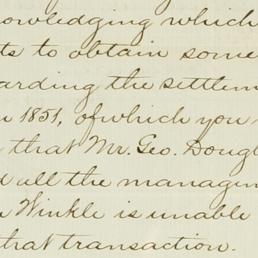 nowledging which
ts to obtain some
arding the settlem
n 1851, of which you
that Mr. Geo. Dougl
d all the managin
Winkle is unable
that transaction.